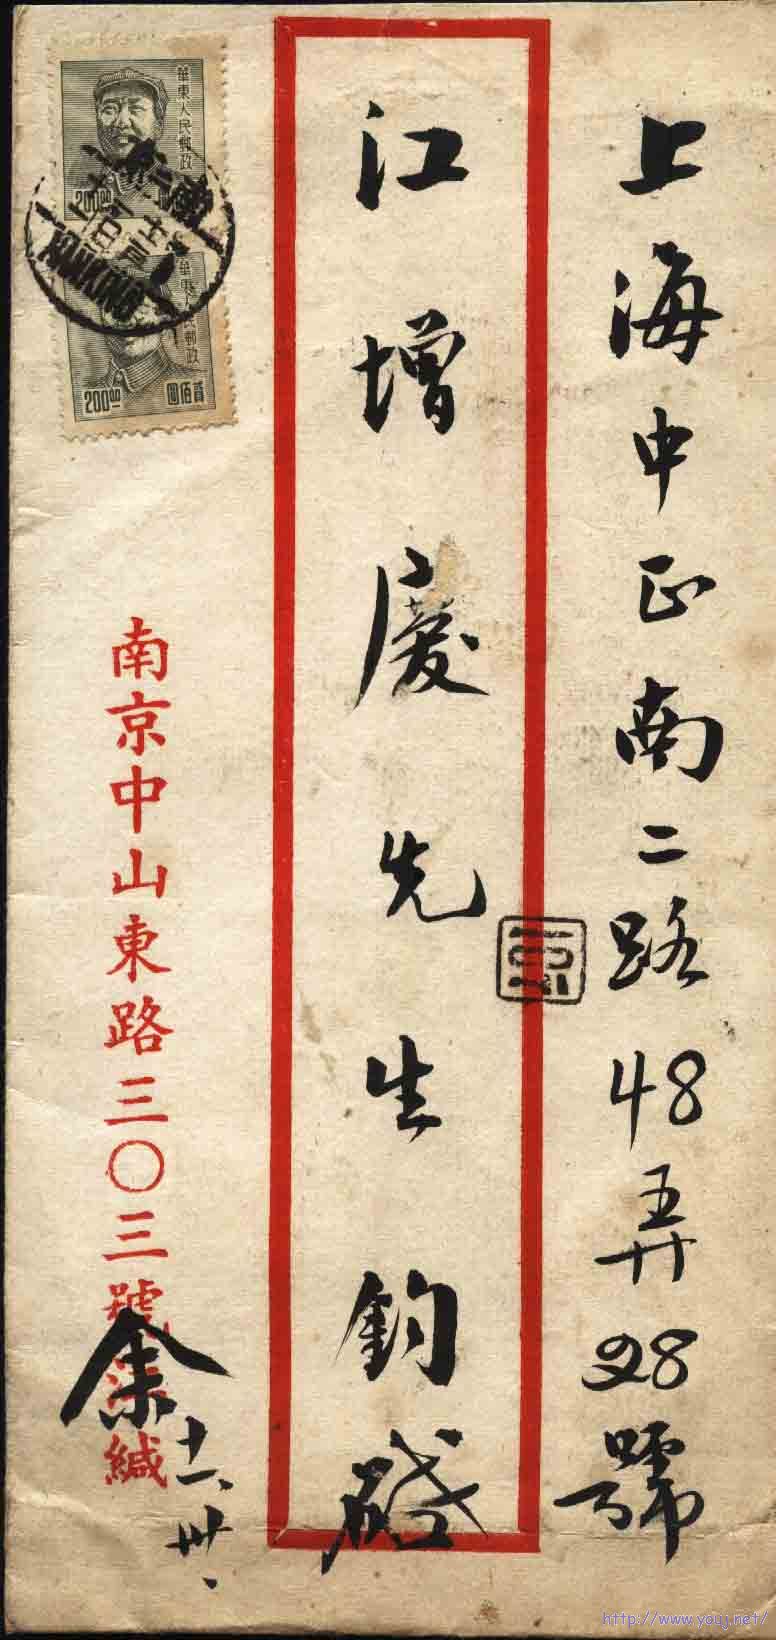 上海中正南二路48弄28號
江增慶先生鈞啓
南京中山東路三〇三號
緘
余
十一、卅、
華東人民郵政
200.00
華東人民郵政
200.00
圓佰貳
NANKING
http://www.youj.net/